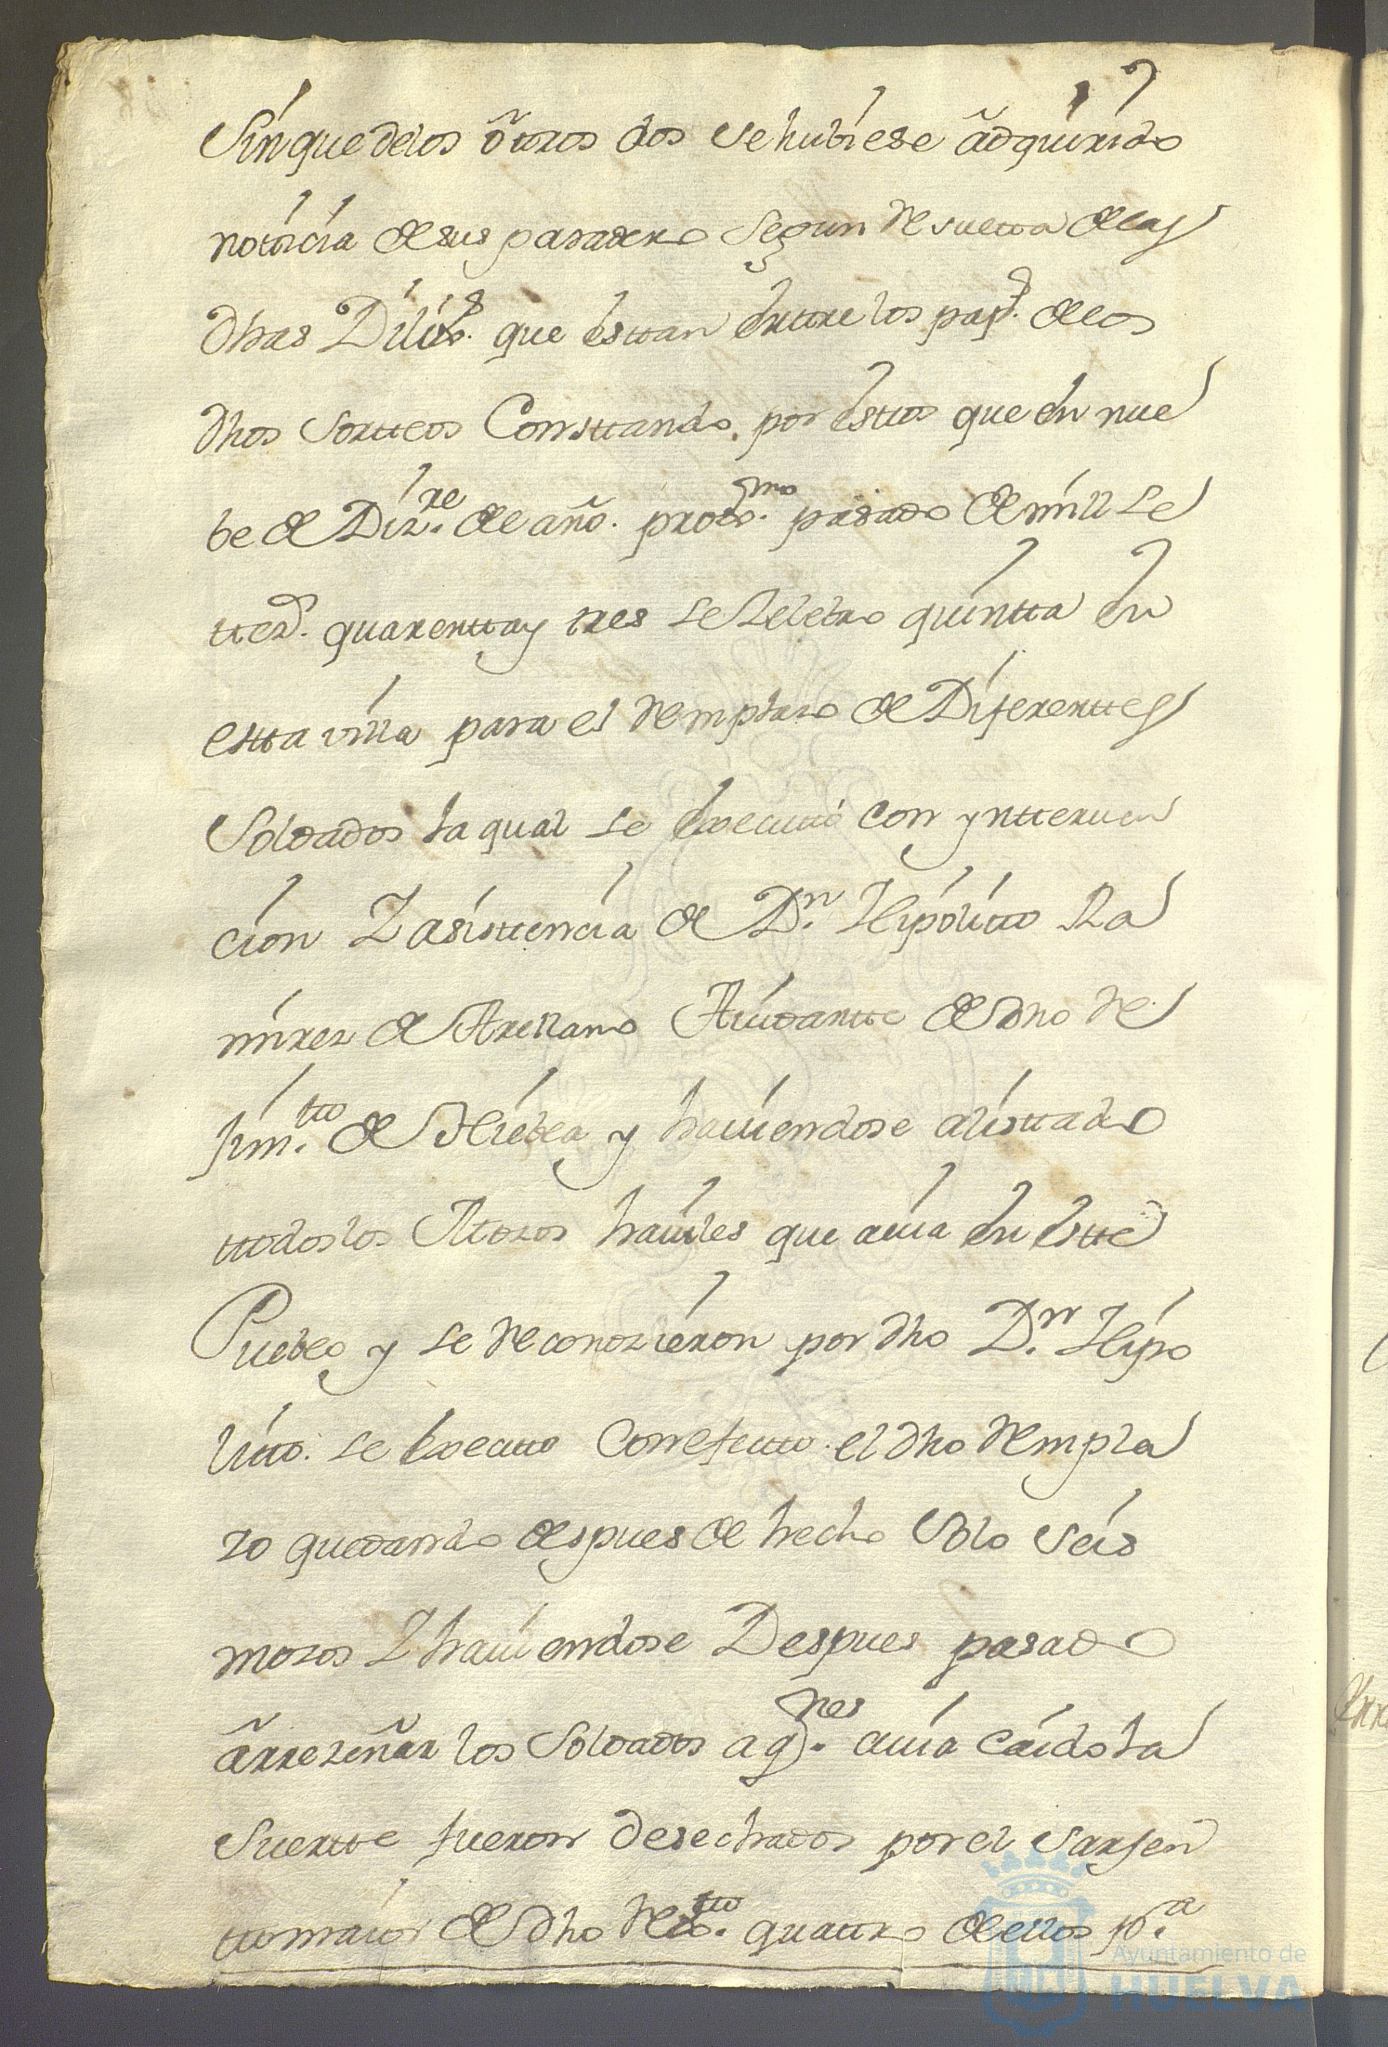 Sin que de los otros dos se hubiese adquirido
noticia de sus paradero segun resulta de las
dhas Dilixs. que esttan enttre los paps. de los
dhos Sortteos Consttando por esttos que en nue
be de Dizre. de el año. proximo. pasado de mill se
ttezs. quarentta y tres se Zelebro quintta en
estta villa para el Remplazo de Diferenttes
Soldados la qual se executtó con yntterven
cion Y asisttencia de Dn. Hipolitto Ra
mirez de Arellano Aiudantte de dho Re
jimtto. de Niebla y haviendose alisttado
ttodos los Mozos haviles que avia en estte
Pueblo y se reconozieron por dho Dn. Hipo
litto. se executto con efectto. el dho Rempla
zo quedando despues de hecho Solo seis
mozos Y haviendose Despues pasado
a rrezeñar los Soldados a qnes. avia caido la
Suertte fueron desechados por el Sarjen
tto maior de dho Rextto. quattro de ellos pa.
Ayuntamiento de
HUELVA